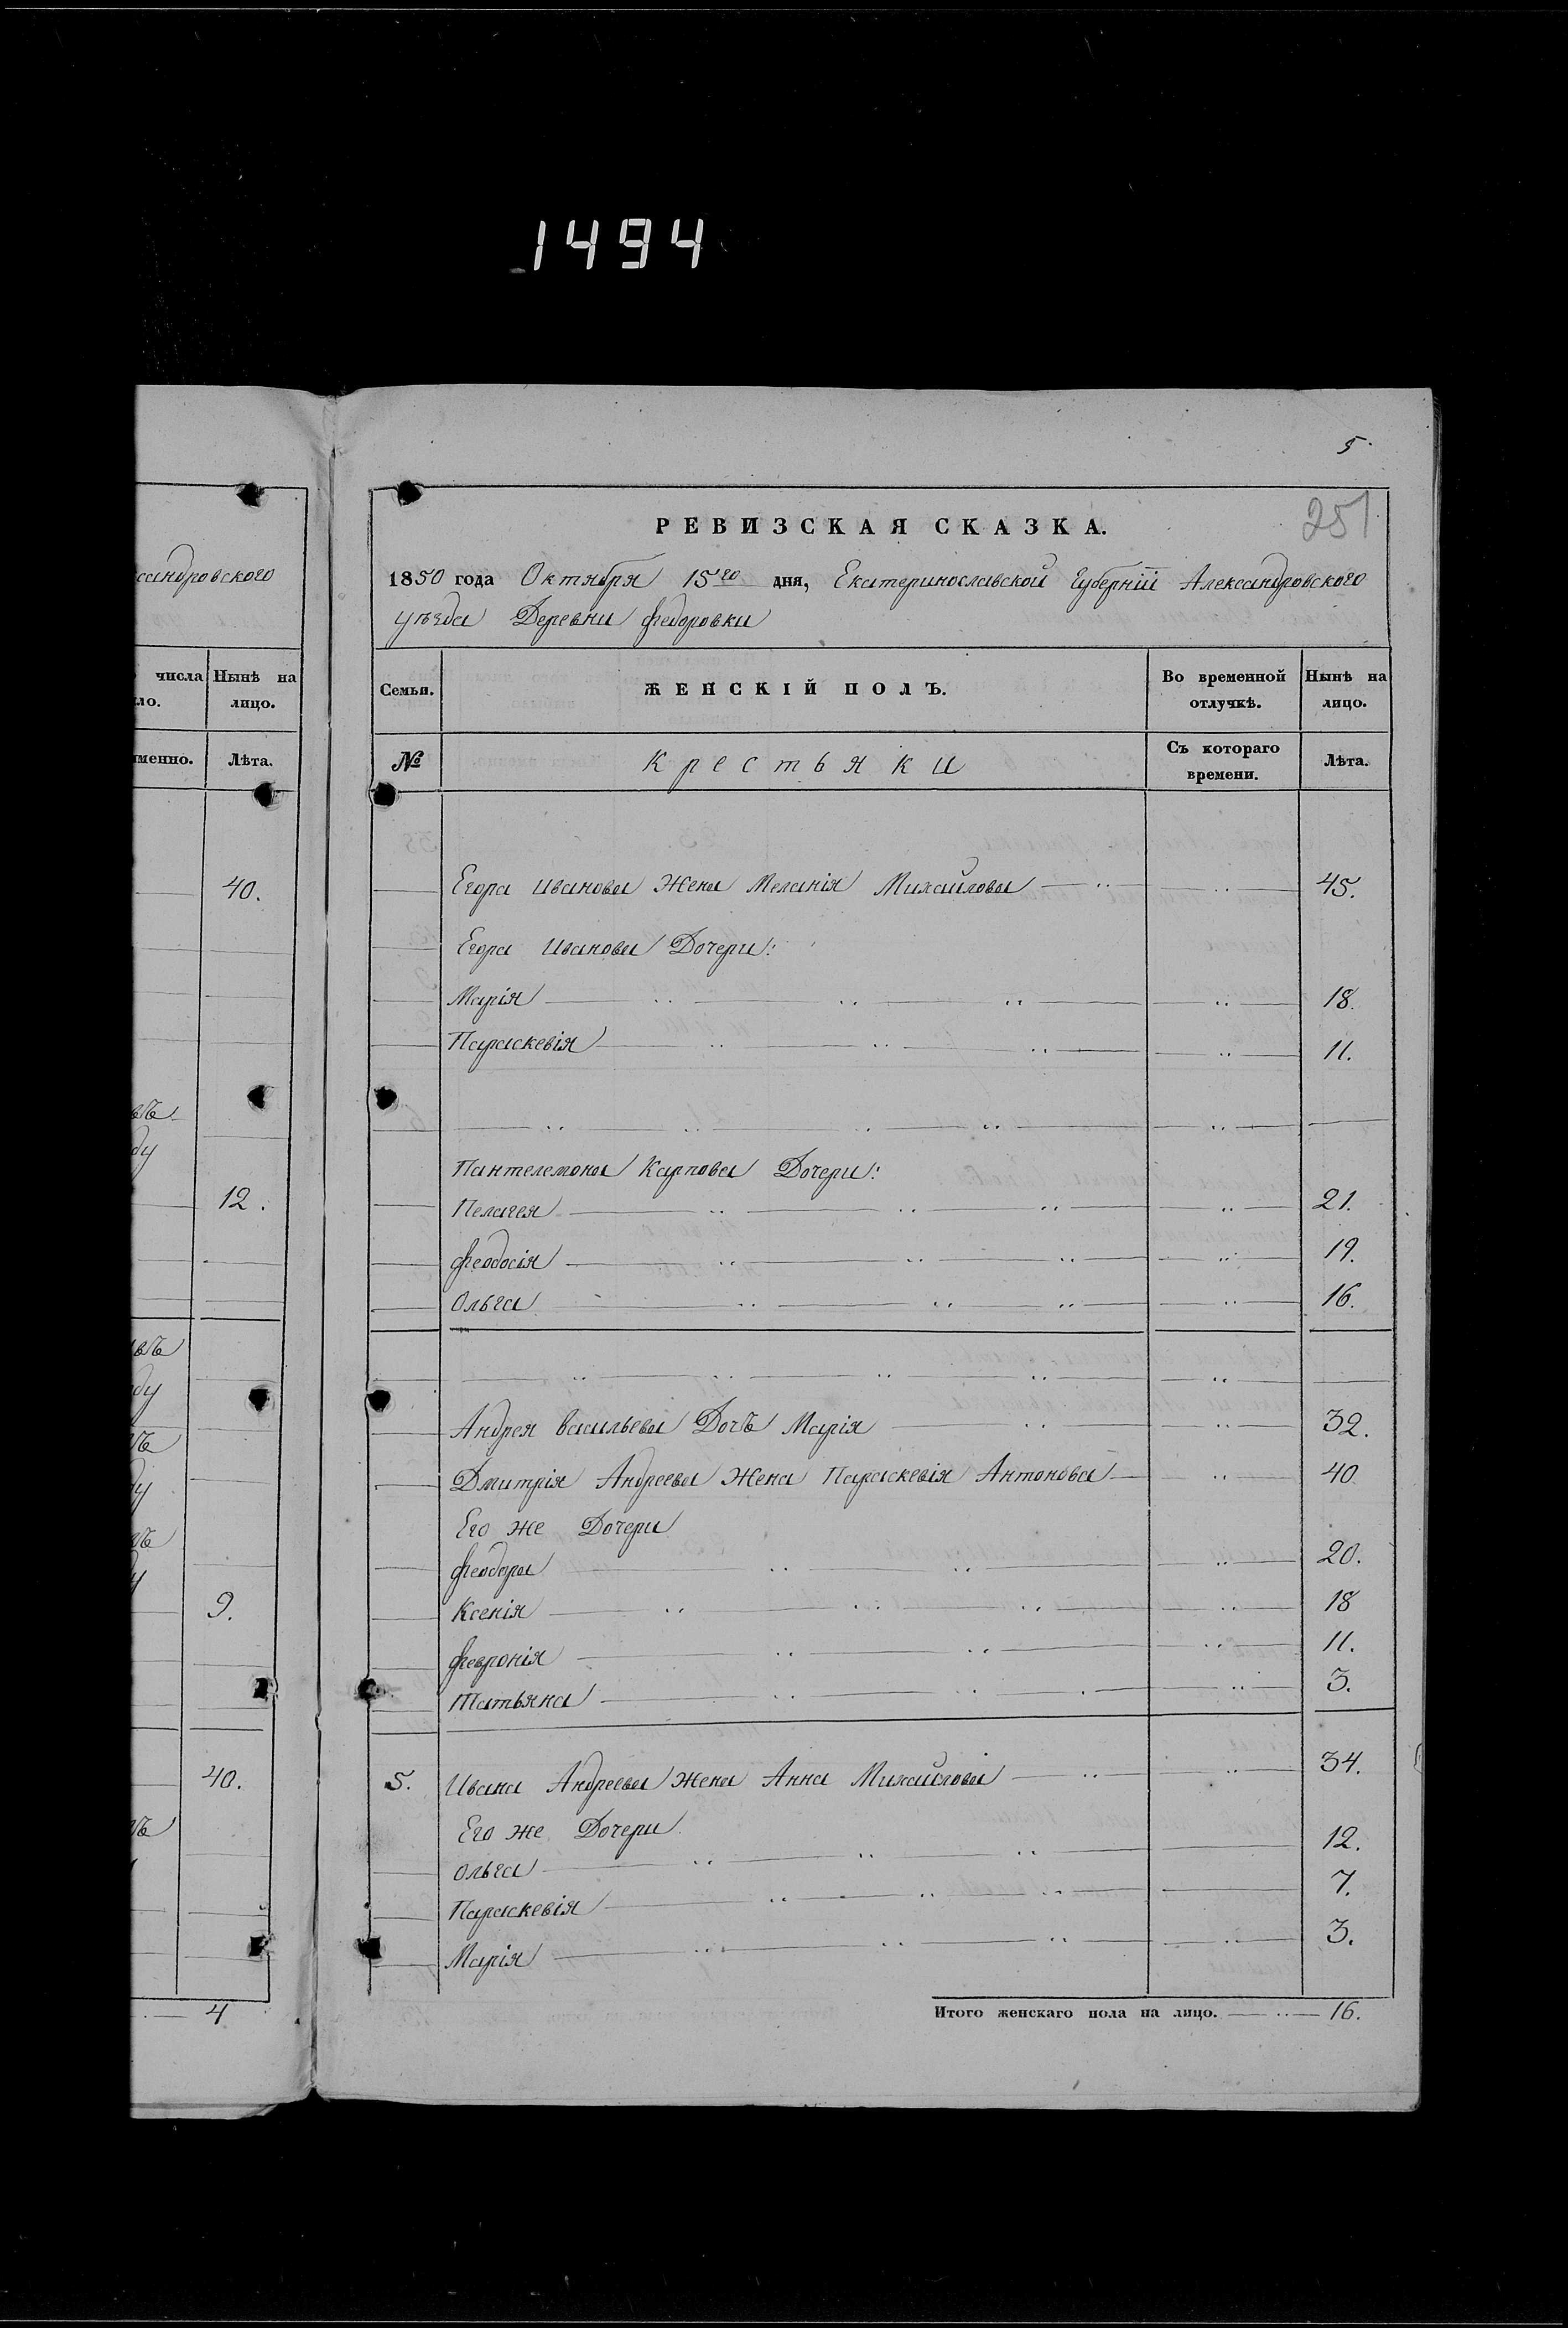 1494
5
251
РЕВИЗСКАЯ СКАЗКА.
1850 года Октября 15го дня, Екатеринославской Губерніи Александровского
уѣзда Деревни Федоровки
Семьи. ЖЕНСКІЙ ПОЛЪ. Во временной отлучкѣ. Нынѣ на лицо.
№ Крестьянки Съ котораго времени. Лѣта.
Егора Иванова Жена Меланія Михайлова 45.
Егора Иванова Дочери:
Марія 18.
Параскевія 11.
Пантелемона Карпова Дочери:
Пелагея 21.
Феодосія 19.
Ольга 16.
Андрея Васильева Дочь Марія 32.
Дмитрія Андреева Жена Параскевія Антонова 40
Его же Дочери
Феодора 20.
Ксенія 18
Февронія 11.
Татьяна 3.
5. Ивана Андреева Жена Анна Михайлова 34.
Его же Дочери
Ольга 12.
Параскевія 7.
Марія 3.
Итого женскаго пола на лицо. 16.
сандровского
числа Нынѣ на
ло. лицо.
именно. Лѣта.
40.
ду
12.
ду
9.
40.
4